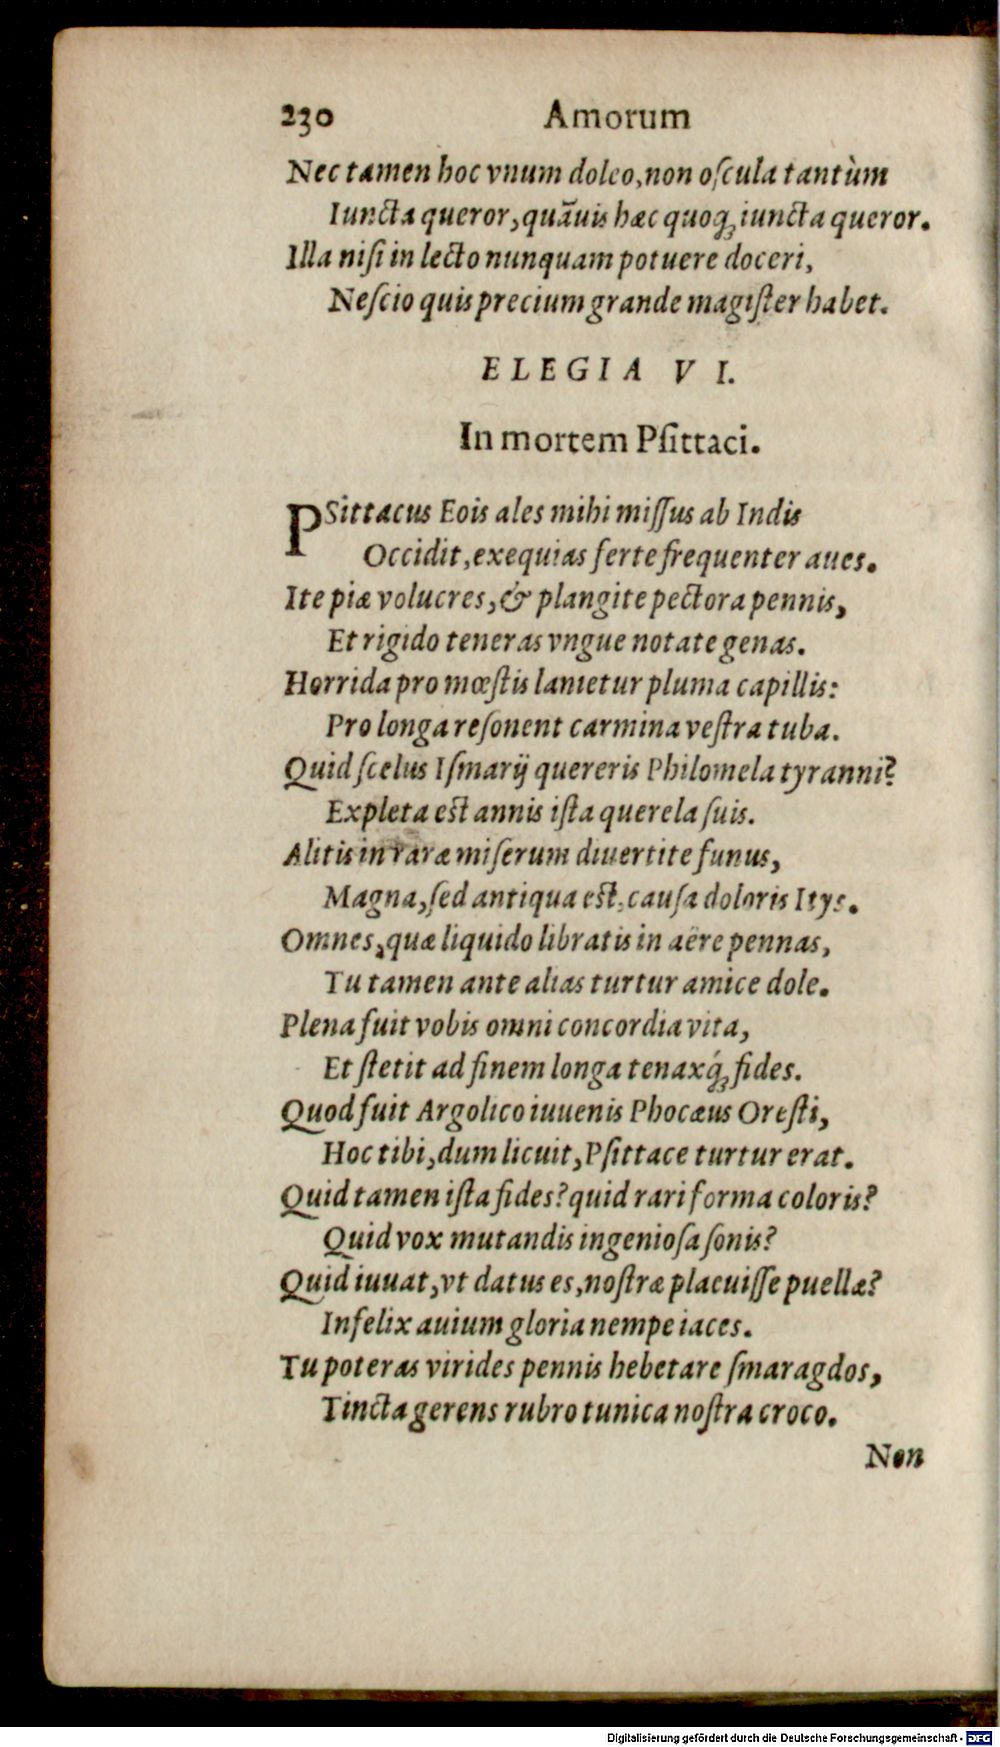 230 Amorum
Nec tamen hoc vnum doleo, non oſcula tantùm
Iuncta queror, quāuis hæc quoq; iuncta queror.
Illa niſi in lecto nunquam potuere doceri,
Neſcio quis precium grande magiſter habet.
ELEGIA VI.
In mortem Pſittaci.
PSittacus Eois ales mihi miſſus ab Indis
Occidit, exequias ferte frequenter aues.
Ite piæ volucres, & plangite pectora pennis,
Et rigido teneras vngue notate genas.
Horrida pro mœſtis lanietur pluma capillis:
Pro longa reſonent carmina veſtra tuba.
Quid ſcelus Iſmarij quereris Philomela tyranni?
Expleta eſt annis iſta querela ſuis.
Alitis in raræ miſerum diuertite funus,
Magna, ſed antiqua eſt, cauſa doloris Itys.
Omnes, quæ liquido libratis in aëre pennas,
Tu tamen ante alias turtur amice dole.
Plena fuit vobis omni concordia vita,
Et ſtetit ad finem longa tenaxq́; fides.
Quod fuit Argolico iuuenis Phocæus Oreſti,
Hoc tibi, dum licuit, Pſittace turtur erat.
Quid tamen iſta fides? quid rari forma coloris?
Quid vox mutandis ingenioſa ſonis?
Quid iuuat, vt datus es, noſtræ placuiſſe puellæ?
Infelix auium gloria nempe iaces.
Tu poteras virides pennis hebetare ſmaragdos,
Tincta gerens rubro tunica noſtra croco.
Non
Digitalisierung gefördert durch die Deutsche Forschungsgemeinschaft - DFG